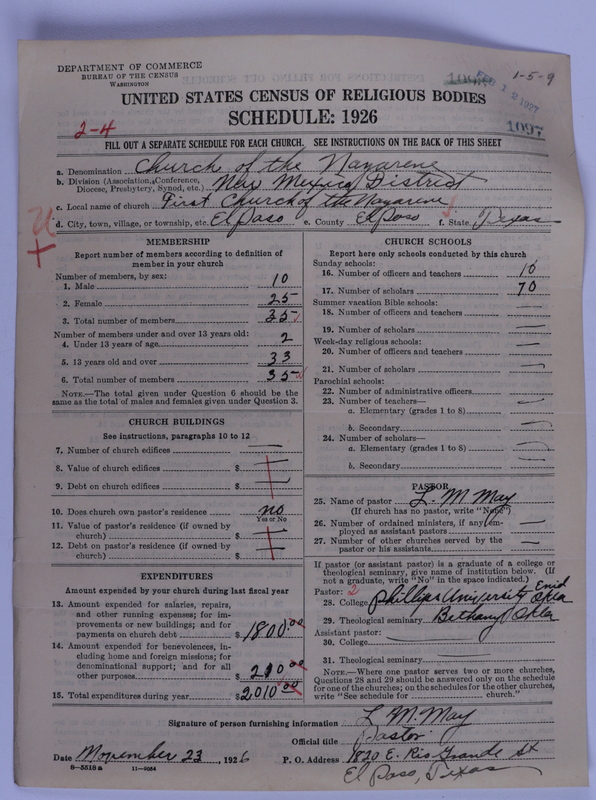 DEPARTMENT OF COMMERCE
BUREAU OF THE CENSUS
WASHINGTON
1-5-9
FEB 12 1927
1097
UNITED STATES CENSUS OF RELIGIOUS BODIES
SCHEDULE: 1926
2-4
FILL OUT A SEPARATE SCHEDULE FOR EACH CHURCH. SEE INSTRUCTIONS ON THE BACK OF THIS SHEET
a. Denomination Church of the Nazarene
b. Division (Association, Conference, Diocese, Presbytery, Synod, etc.) New Mexico District
c. Local name of church First Church of the Nazarene
d. City, town, village, or township, etc. El Paso e. County El Paso f. State Texas
MEMBERSHIP
Report number of members according to definition of
member in your church
Number of members, by sex:
1. Male 10
2. Female 25
3. Total number of members 35
Number of members under and over 13 years old:
4. Under 13 years of age 2
5. 13 years old and over 33
6. Total number of members 35
NOTE.—The total given under Question 6 should be the
same as the total of males and females given under Question 3.
CHURCH BUILDINGS
See instructions, paragraphs 10 to 12
7. Number of church edifices —
8. Value of church edifices $ —
9. Debt on church edifices $ —
10. Does church own pastor's residence? no
Yes or No
11. Value of pastor's residence (if owned by
church) $ —
12. Debt on pastor's residence (if owned by
church) $ —
EXPENDITURES
Amount expended by your church during last fiscal year
13. Amount expended for salaries, repairs,
and other running expenses; for im-
provements or new buildings; and for
payments on church debt $1800.00
14. Amount expended for benevolences, in-
cluding home and foreign missions; for
denominational support; and for all
other purposes $210.00
15. Total expenditures during year $2010.00
CHURCH SCHOOLS
Report here only schools conducted by this church
Sunday schools:
16. Number of officers and teachers 10
17. Number of scholars 70
Summer vacation Bible schools:
18. Number of officers and teachers —
19. Number of scholars —
Week-day religious schools:
20. Number of officers and teachers —
21. Number of scholars —
Parochial schools:
22. Number of administrative officers —
23. Number of teachers—
a. Elementary (grades 1 to 8) —
b. Secondary —
24. Number of scholars—
a. Elementary (grades 1 to 8) —
b. Secondary —
PASTOR
25. Name of pastor L. M. May
(If church has no pastor, write "None")
26. Number of ordained ministers, if any (em-
ployed as assistant pastors —
27. Number of other churches served by the
pastor or his assistants —
If pastor (or assistant pastor) is a graduate of a college or
theological seminary, give name of institution below. (If
not a graduate, write "No" in the space indicated.)
Pastor: 2
28. College Phillips University Enid Okla
29. Theological seminary Bethany Okla
Assistant pastor:
30. College —
31. Theological seminary —
NOTE.—Where one pastor serves two or more churches,
Questions 28 and 29 should be answered only on the schedule
for one of the churches; on the schedules for the other churches,
write "See schedule for church."
Signature of person furnishing information L. M. May
Official title Pastor
Date November 23, 1926 P. O. Address 1820 E. Rio Grande St
El Paso, Texas
8-5518 a 11-9054